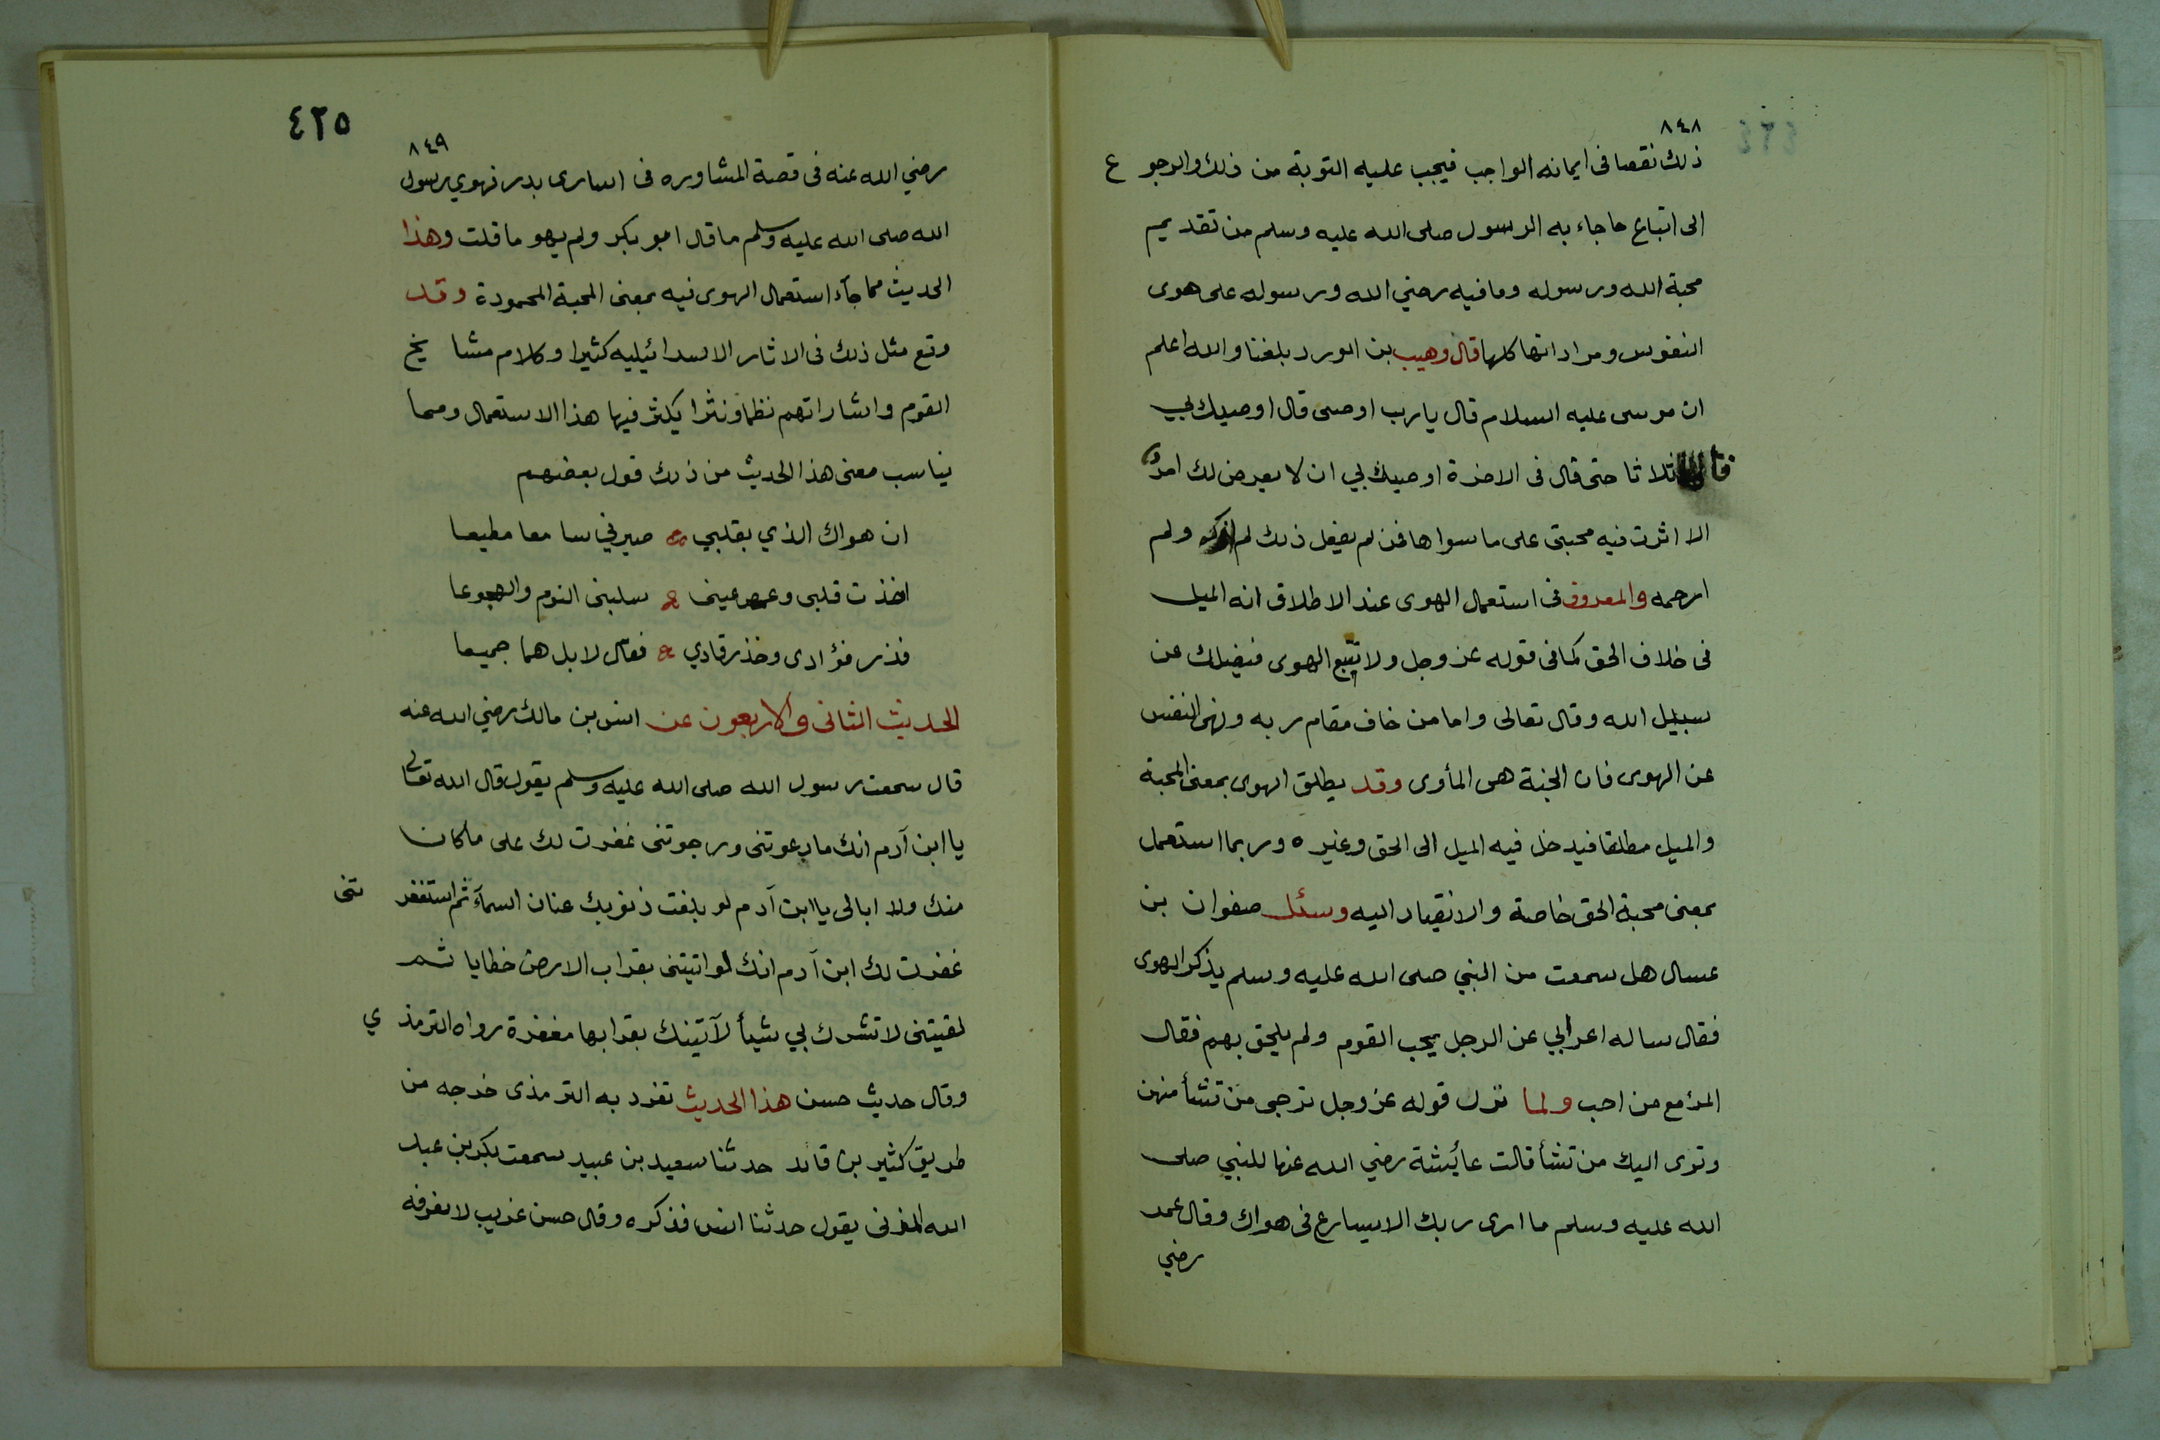 ٨٤٨
ذلك نقصا فى ايمانه الواجب فيجب عليه التوبة من ذلك والرجو ع
الى اتباع ما جاء به الرسول صلى الله عليه وسلم من تقديم
محبة الله ورسوله وما فيه رضي الله ورسوله على هوى
النفوس ومراداتها كلها قال وهيب بن الورد بلغنا والله اعلم
ان موسى عليه السلام قال يارب اوصى قال اوصيك بي
قالها ثلاثا حتى قال فى الاخرة اوصيك بي ان لا يعرض لك امر
الا اثرت فيه محبتى على ما سواها فمن لم يفعل ذلك لم ازكه ولم
ارحمه والمعروف فى استعمال الهوى عند الاطلاق انه الميل
فى خلاف الحق كما فى قوله عز وجل ولا تتبع الهوى فيضلك عن
سبيل الله وقال تعالى واما من خاف مقام ربه ونهى النفس
عن الهوى فان الجنة هى المأوى وقد يطلق الهوى بمعنى المحبة
والميل مطلقا فيدخل فيه الميل الى الحق وغيره وربما استعمل
بمعنى محبة الحق خاصة والانقياد اليه وسئل صفوان بن
عسال هل سمعت من النبي صلى الله عليه وسلم يذكر الهوى
فقال ساله اعرابي عن الرجل يحب القوم ولم يلحق بهم فقال
المرء مع من احب ولما نزل قوله عز وجل ترجى من تشأ منهن
وتوى اليك من تشأ قالت عائشة رضي الله عنها للنبي صلى
الله عليه وسلم ما ارى ربك الا يسارع فى هواك وقال عمر
رضي
٤٢٥
٨٤٩
رضي الله عنه فى قصة المشاوره فى اسارى بدر فهوي رسول
الله صلى الله عليه وسلم ما قال ابو بكر ولم يهو ما قلت وهذا
الحديث مما جآء استعمال الهوى فيه بمعنى المحبة المحمودة وقد
وقع مثل ذلك فى الاثار الاسرائيليه كثيرا وكلام مشا يخ
القوم واشاراتهم نظما ونثرا يكثر فيها هذا الاستعمال ومما
يناسب معنى هذا الحديث من ذلك قول بعضهم
ان هواك الذي بقلبي صيرني سا معا مطيعا
اخذت قلبى وغمض عينى سلبنى النوم والهجوعا
فذر فؤادى وخذ رقادي فقال لا بل هما جميعا
الحديث الثانى والاربعون عن انس بن مالك رضي الله عنه
قال سمعت رسول الله صلى الله عليه وسلم يقول قال الله تعالى
يا ابن آدم انك ما دعوتنى ورجوتنى غفرت لك على ما كان
منك ولا ابالى يا ابن آدم لو بلغت ذنوبك عنان السمآء ثم استغفر تنى
غفرت لك ابن آدم انك لو اتيتنى بقراب الارض خطايا ثم
لقيتنى لا تشرك بي شيأ لآتيتك بقرابها مغفرة رواه الترمذ ي
وقال حديث حسن هذا الحديث تفرد به الترمذى خرجه من
طريق كثير بن قائد حدثنا سعيد بن عبيد سمعت بكر بن عبد
الله المزنى يقول حدثنا انس فذكره وقال حسن غريب لا نعرفه